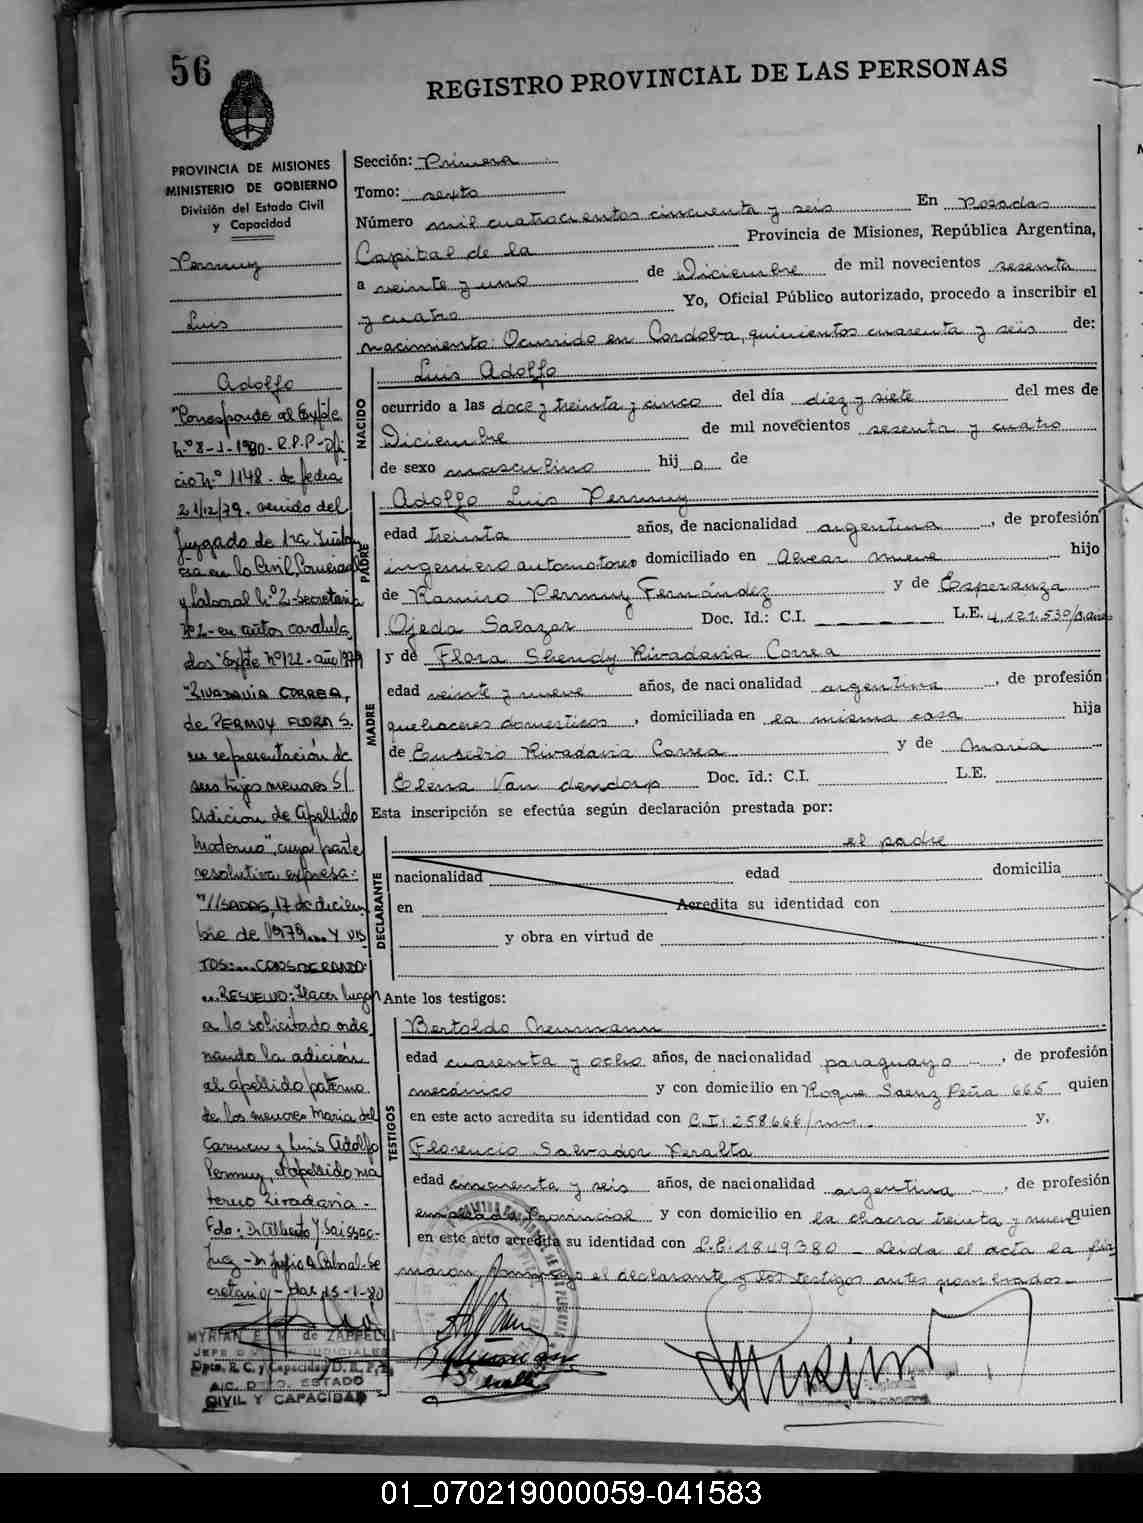 56
REGISTRO PROVINCIAL DE LAS PERSONAS
PROVINCIA DE MISIONES
MINISTERIO DE GOBIERNO
División del Estado Civil
y Capacidad
Permuy
Luis
Adolfo
"Corresponde al Expte
Nº 8-1-1980-R.P.P-Ofi
cio nº 1148. de fecha
21/12/79. venido del
Juzgado de 1ra. Instan
cia en lo Civil, Comercial
y Laboral Nº 2-Secretaria
Nº 2-en autos caratula
dos "Expte Nº 122-año 1979
"RIVADAVIA CORREA,
de PERMUY FLORA S.
en representación de
sus hijos menores S/
Adición de Apellido
Materno", cuya parte
resolutiva expresa:
"//SADAS, 17 de diciem
bre de 1979... Y VIS
TOS:... CONSIDERANDO:
... RESUELVO: Hacer lugar
a lo solicitado orde
nando la adición
al apellido paterno
de los menores Maria del
Carmen y Luis Adolfo
Permuy, el apellido ma
terno Rivadavia.-
Fdo. Dr Alberto
Juez - Dr Julio A Cabral-Se
cretario,-
15-1-80
MYRIAN E. M. de ZAPPELLI
JEFE JUDICIALES
Dpto. R. C. y Capacidad D. R. P. P.
A/C. DPTO. ESTADO
CIVIL Y CAPACIDAD
Sección: Primera
Tomo: sexto
Número mil cuatrocientos cincuenta y seis En Posadas
Capital de la Provincia de Misiones, República Argentina,
a veinte y uno de Diciembre de mil novecientos sesenta
y cuatro Yo, Oficial Público autorizado, procedo a inscribir el
nacimiento: Ocurrido en Cordoba, quinientos cuarenta y seis de:
NACIDO
Luis Adolfo
ocurrido a las doce y treinta y cinco del día diez y siete del mes de
Diciembre de mil novecientos sesenta y cuatro
de sexo masculino hij o de
PADRE
Adolfo Luis Permuy
edad treinta años, de nacionalidad argentina, de profesión
ingeniero automotores domiciliado en Alvear nueve hijo
de Ramiro Permuy Fernández y de Esperanza
Ojeda Salazar Doc. Id.: C.I. L.E. 4.121.530
MADRE
y de Flora Shendy Rivadavia Correa
edad veinte y nueve años, de nacionalidad argentina, de profesión
quehaceres domesticos, domiciliada en la misma casa hija
de Eusebio Rivadavia Correa y de Maria
Elena Van dendorp Doc. Id.: C.I. L.E.
Esta inscripción se efectúa según declaración prestada por:
el padre
DECLARANTE
nacionalidad edad domicilia
en Acredita su identidad con
y obra en virtud de
Ante los testigos:
TESTIGOS
Bertoldo Neumann
edad cuarenta y ocho años, de nacionalidad paraguayo, de profesión
mecánico y con domicilio en Roque Saenz Peña 665 quien
en este acto acredita su identidad con C.I: 258666 y,
Florencio Salvador Peralta
edad cincuenta y seis años, de nacionalidad argentina, de profesión
empleado Provincial y con domicilio en la chacra treinta y nueve quien
en este acto acredita su identidad con L.E: 1849380 - Leida el acta la fir
maron conmigo el declarante y los testigos antes nombrados.-
01_070219000059-041583